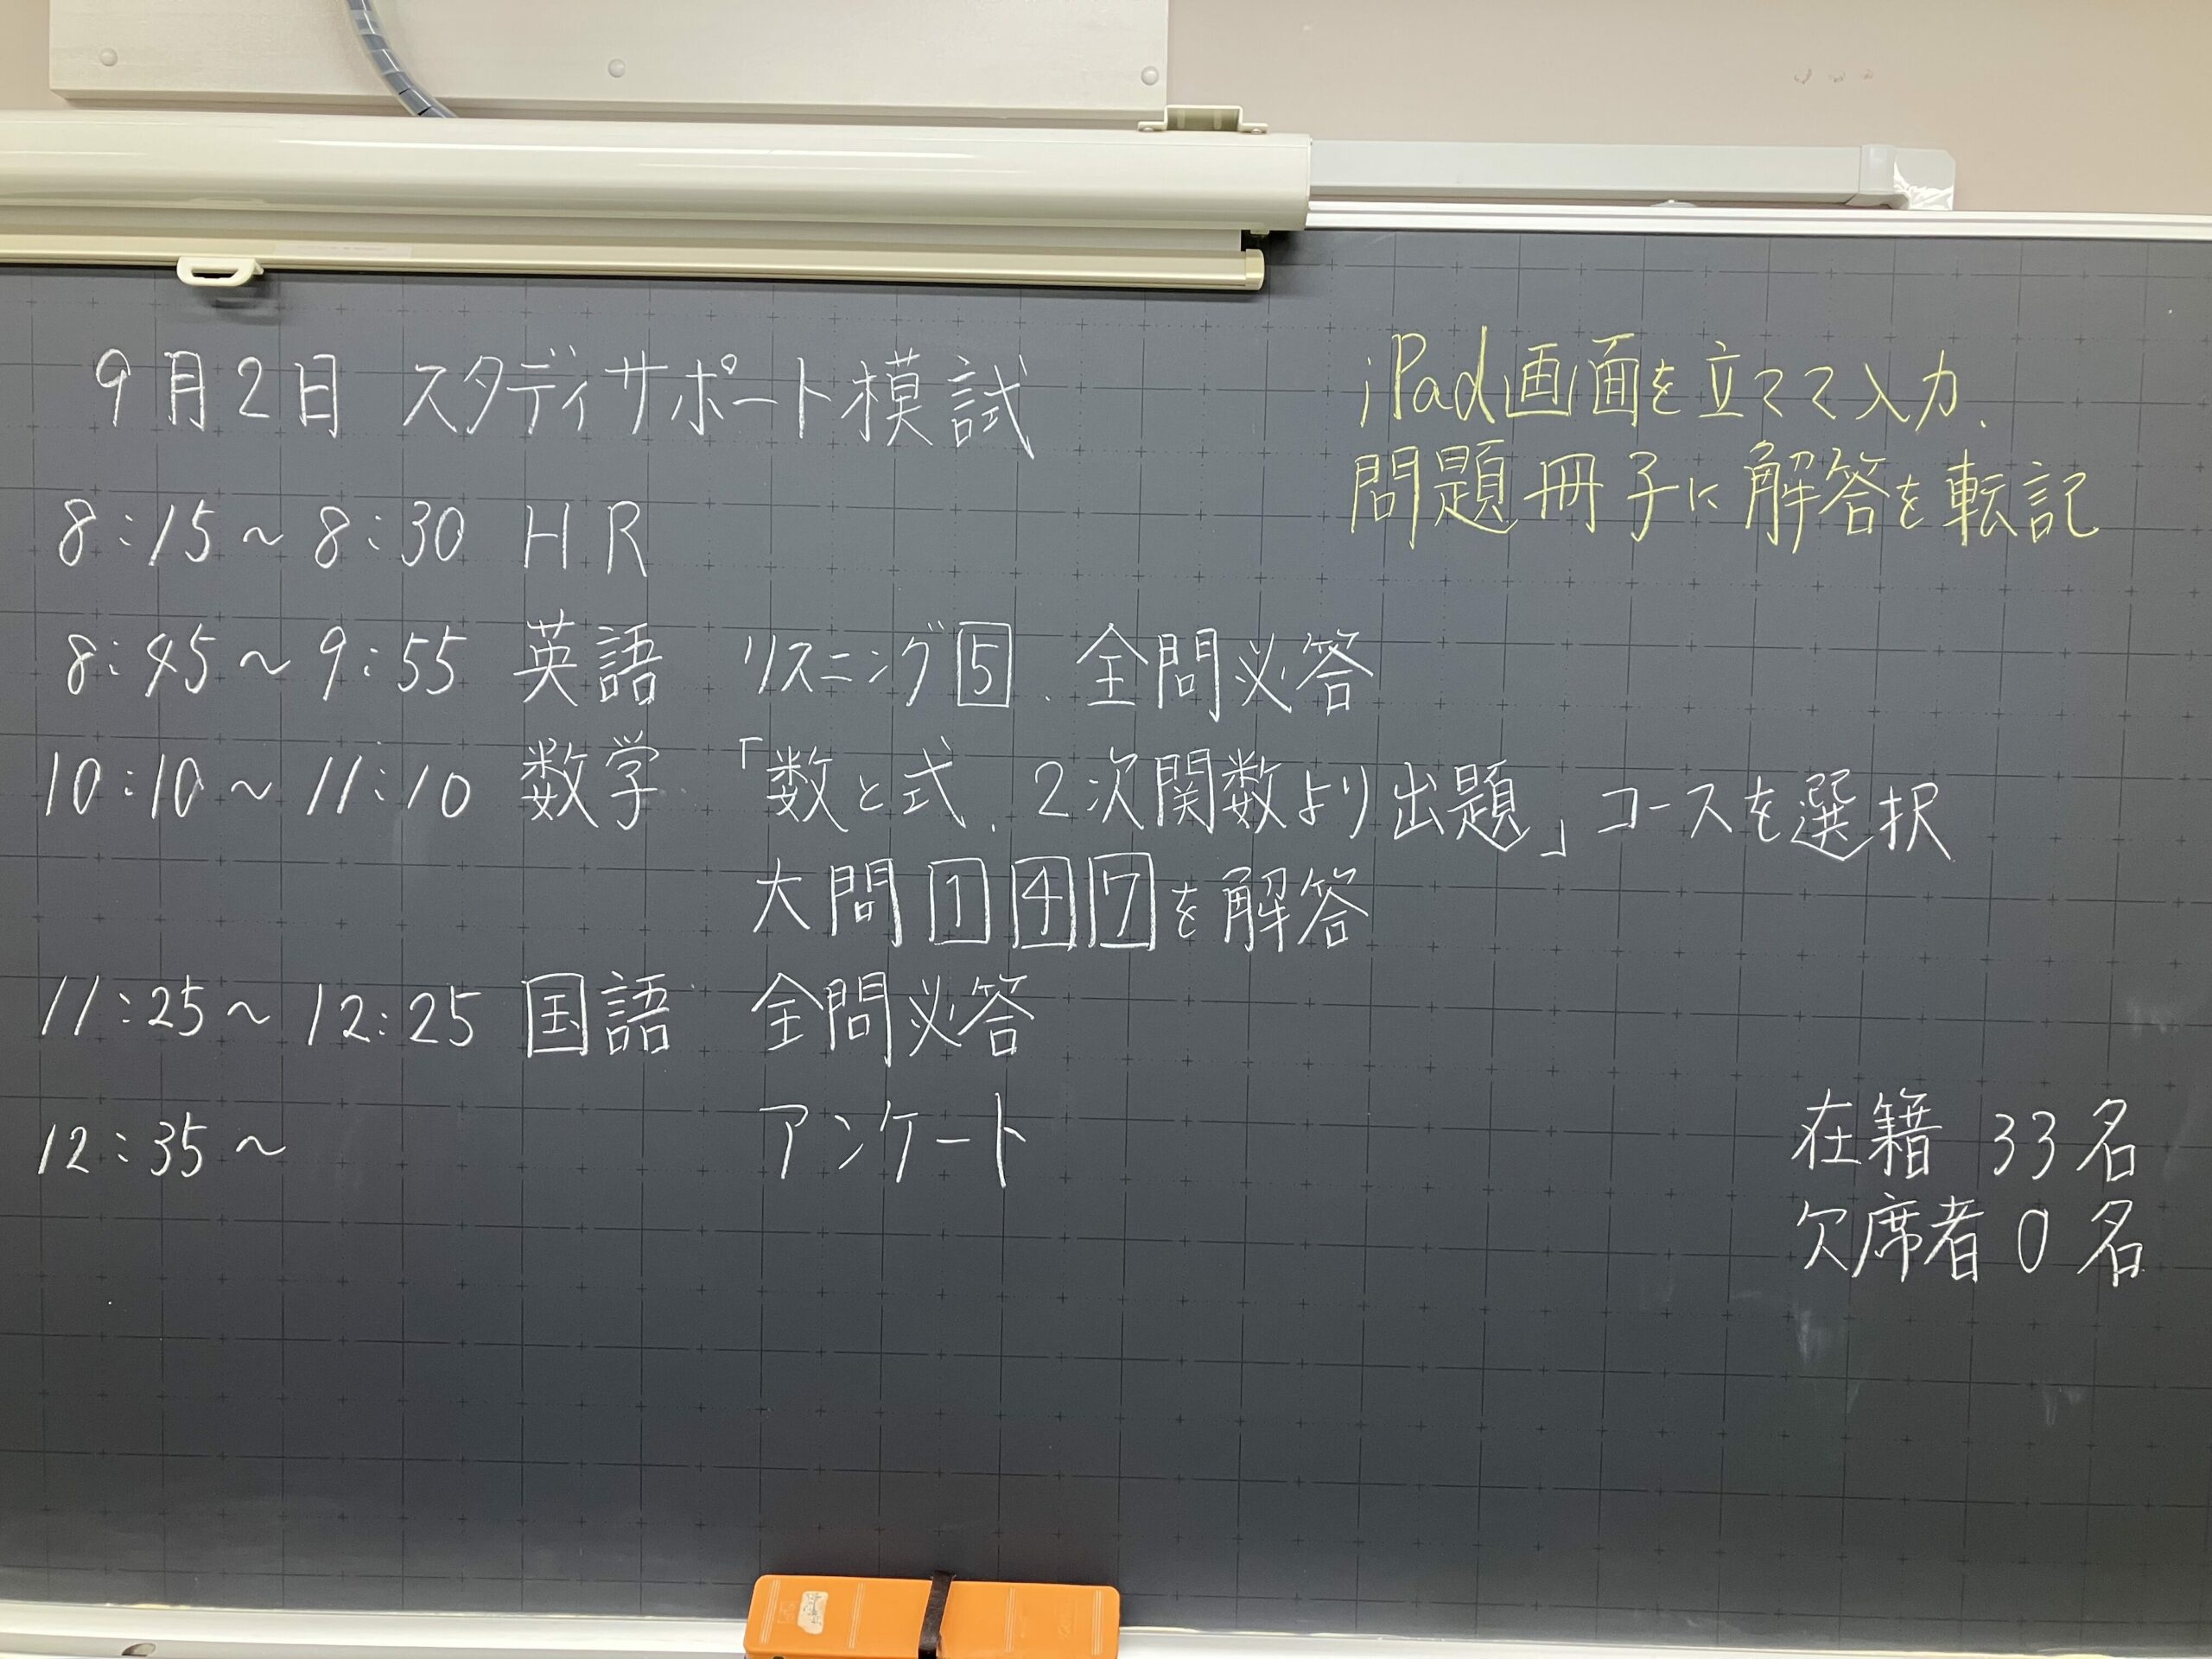 9月2日 スタディサポート模試
iPad画面を立てて入力、
問題冊子に解答を転記
8:15～8:30 HR
8:45～9:55 英語 リスニング5、全問必答
10:10～11:10 数学 「数と式、2次関数より出題」コースを選択
大問147を解答
11:25～12:25 国語 全問必答
12:35～ アンケート
在籍 33名
欠席者 0名